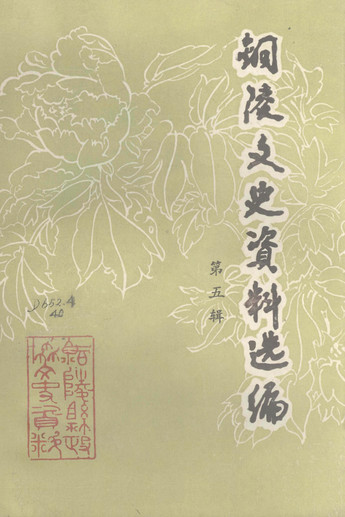 铜陵文史資料选编
第五辑
D652.4
40